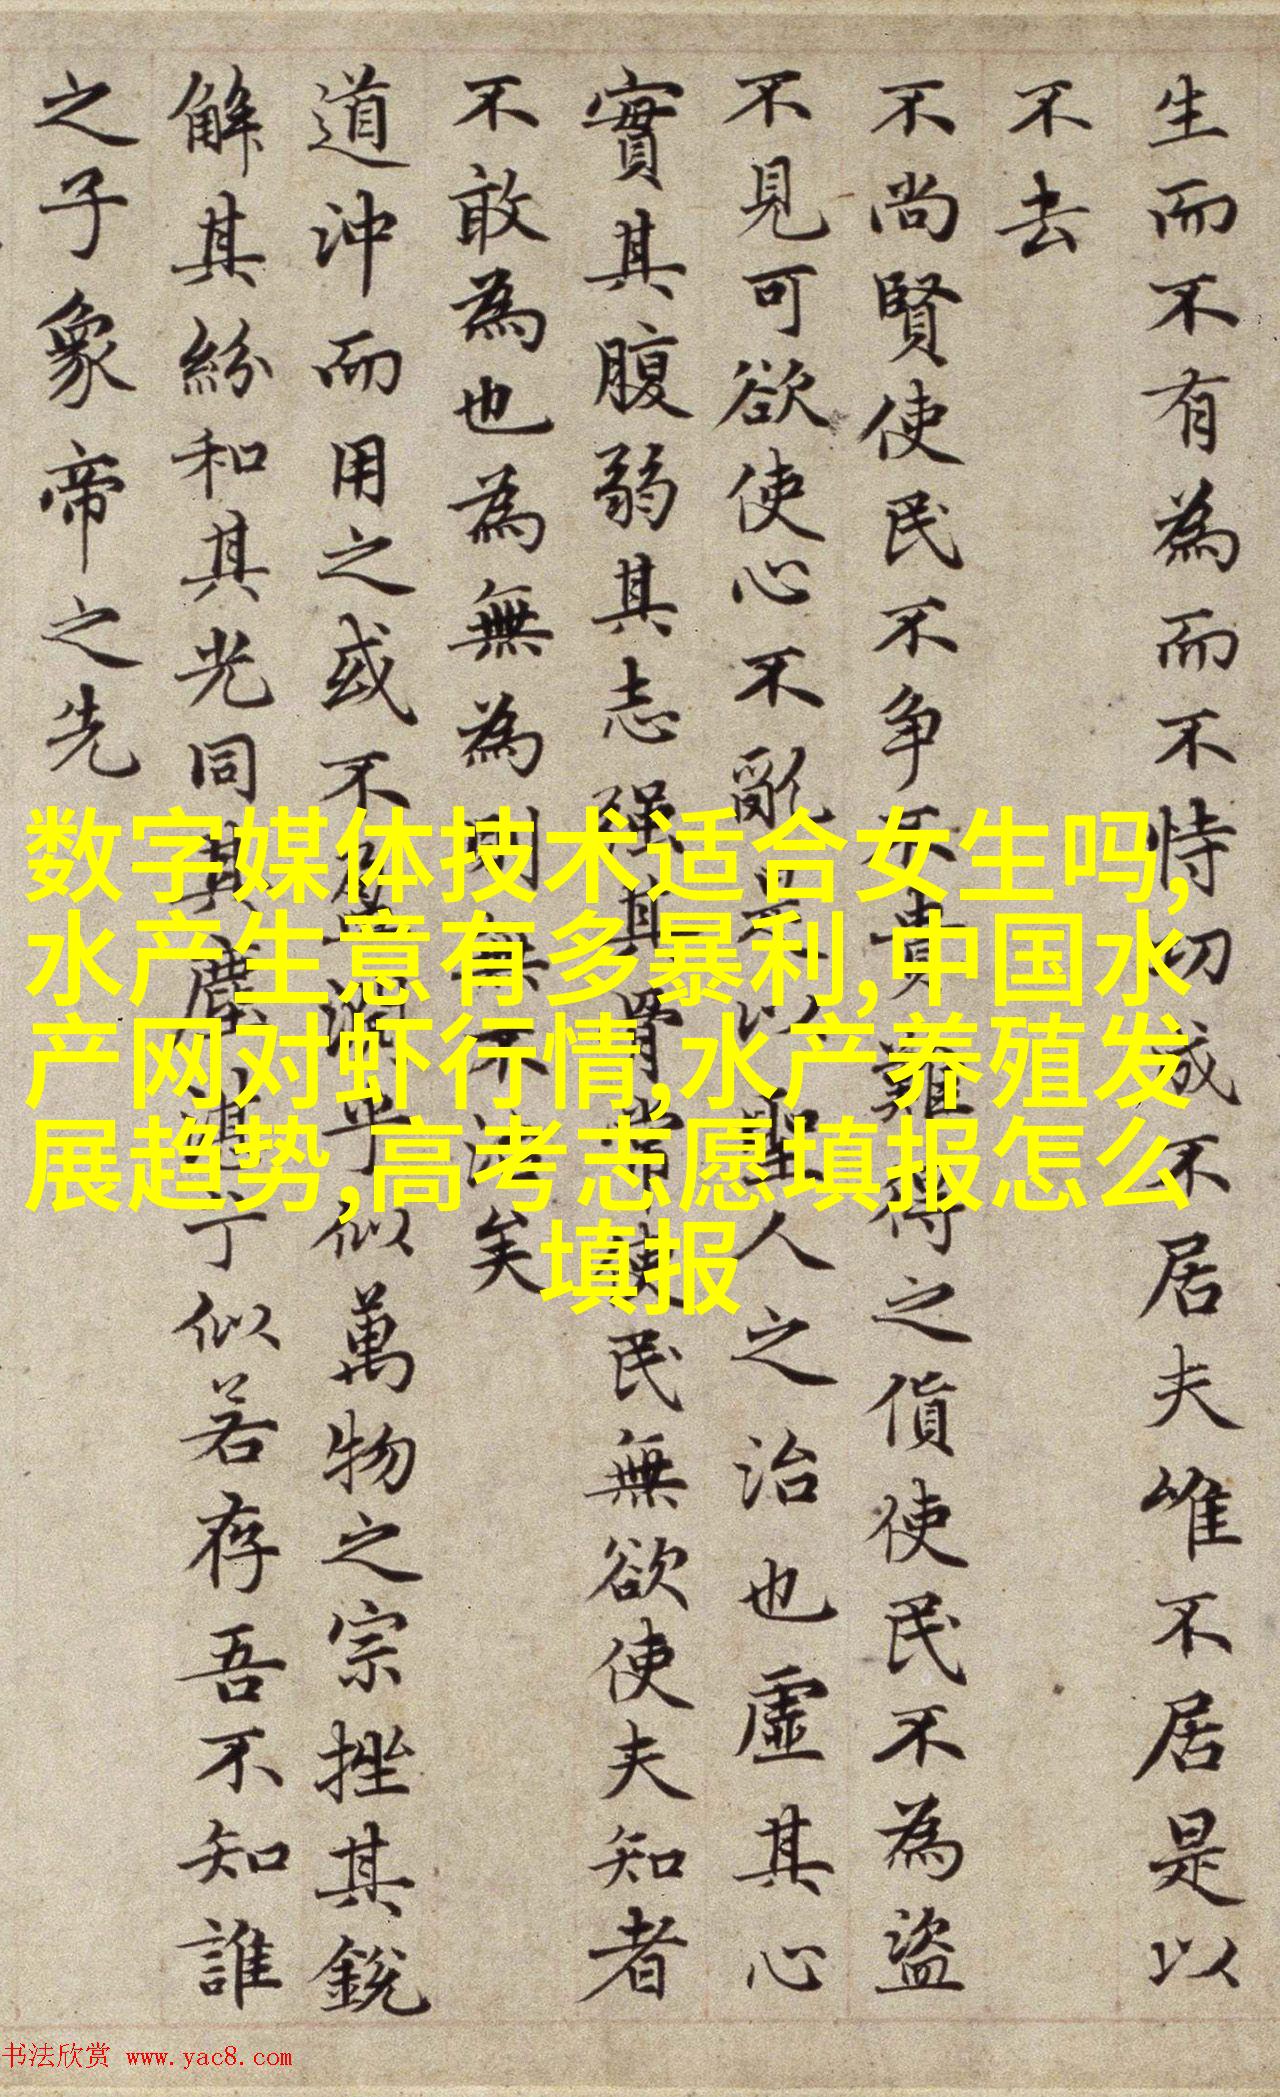 生而不有為而不恃功成不居夫唯不居是以
不去
不尚賢使民不争不貴難得之貨使民不為盜
不見可欲使心不亂是以聖人之治也虛其心
實其腹弱其志强其骨常使民無欲使夫知者
不敢為也為無為則無不治矣
道沖而用之或不盈淵乎似萬物之宗挫其銳
解其紛和其光同其塵湛兮似若存吾不知誰
之子象帝之先
数字媒体技术适合女生吗,
水产生意有多暴利,中国水
产网对虾行情,水产养殖发
展趋势,高考志愿填报怎么
填报
书法欣赏 www.yac8.com